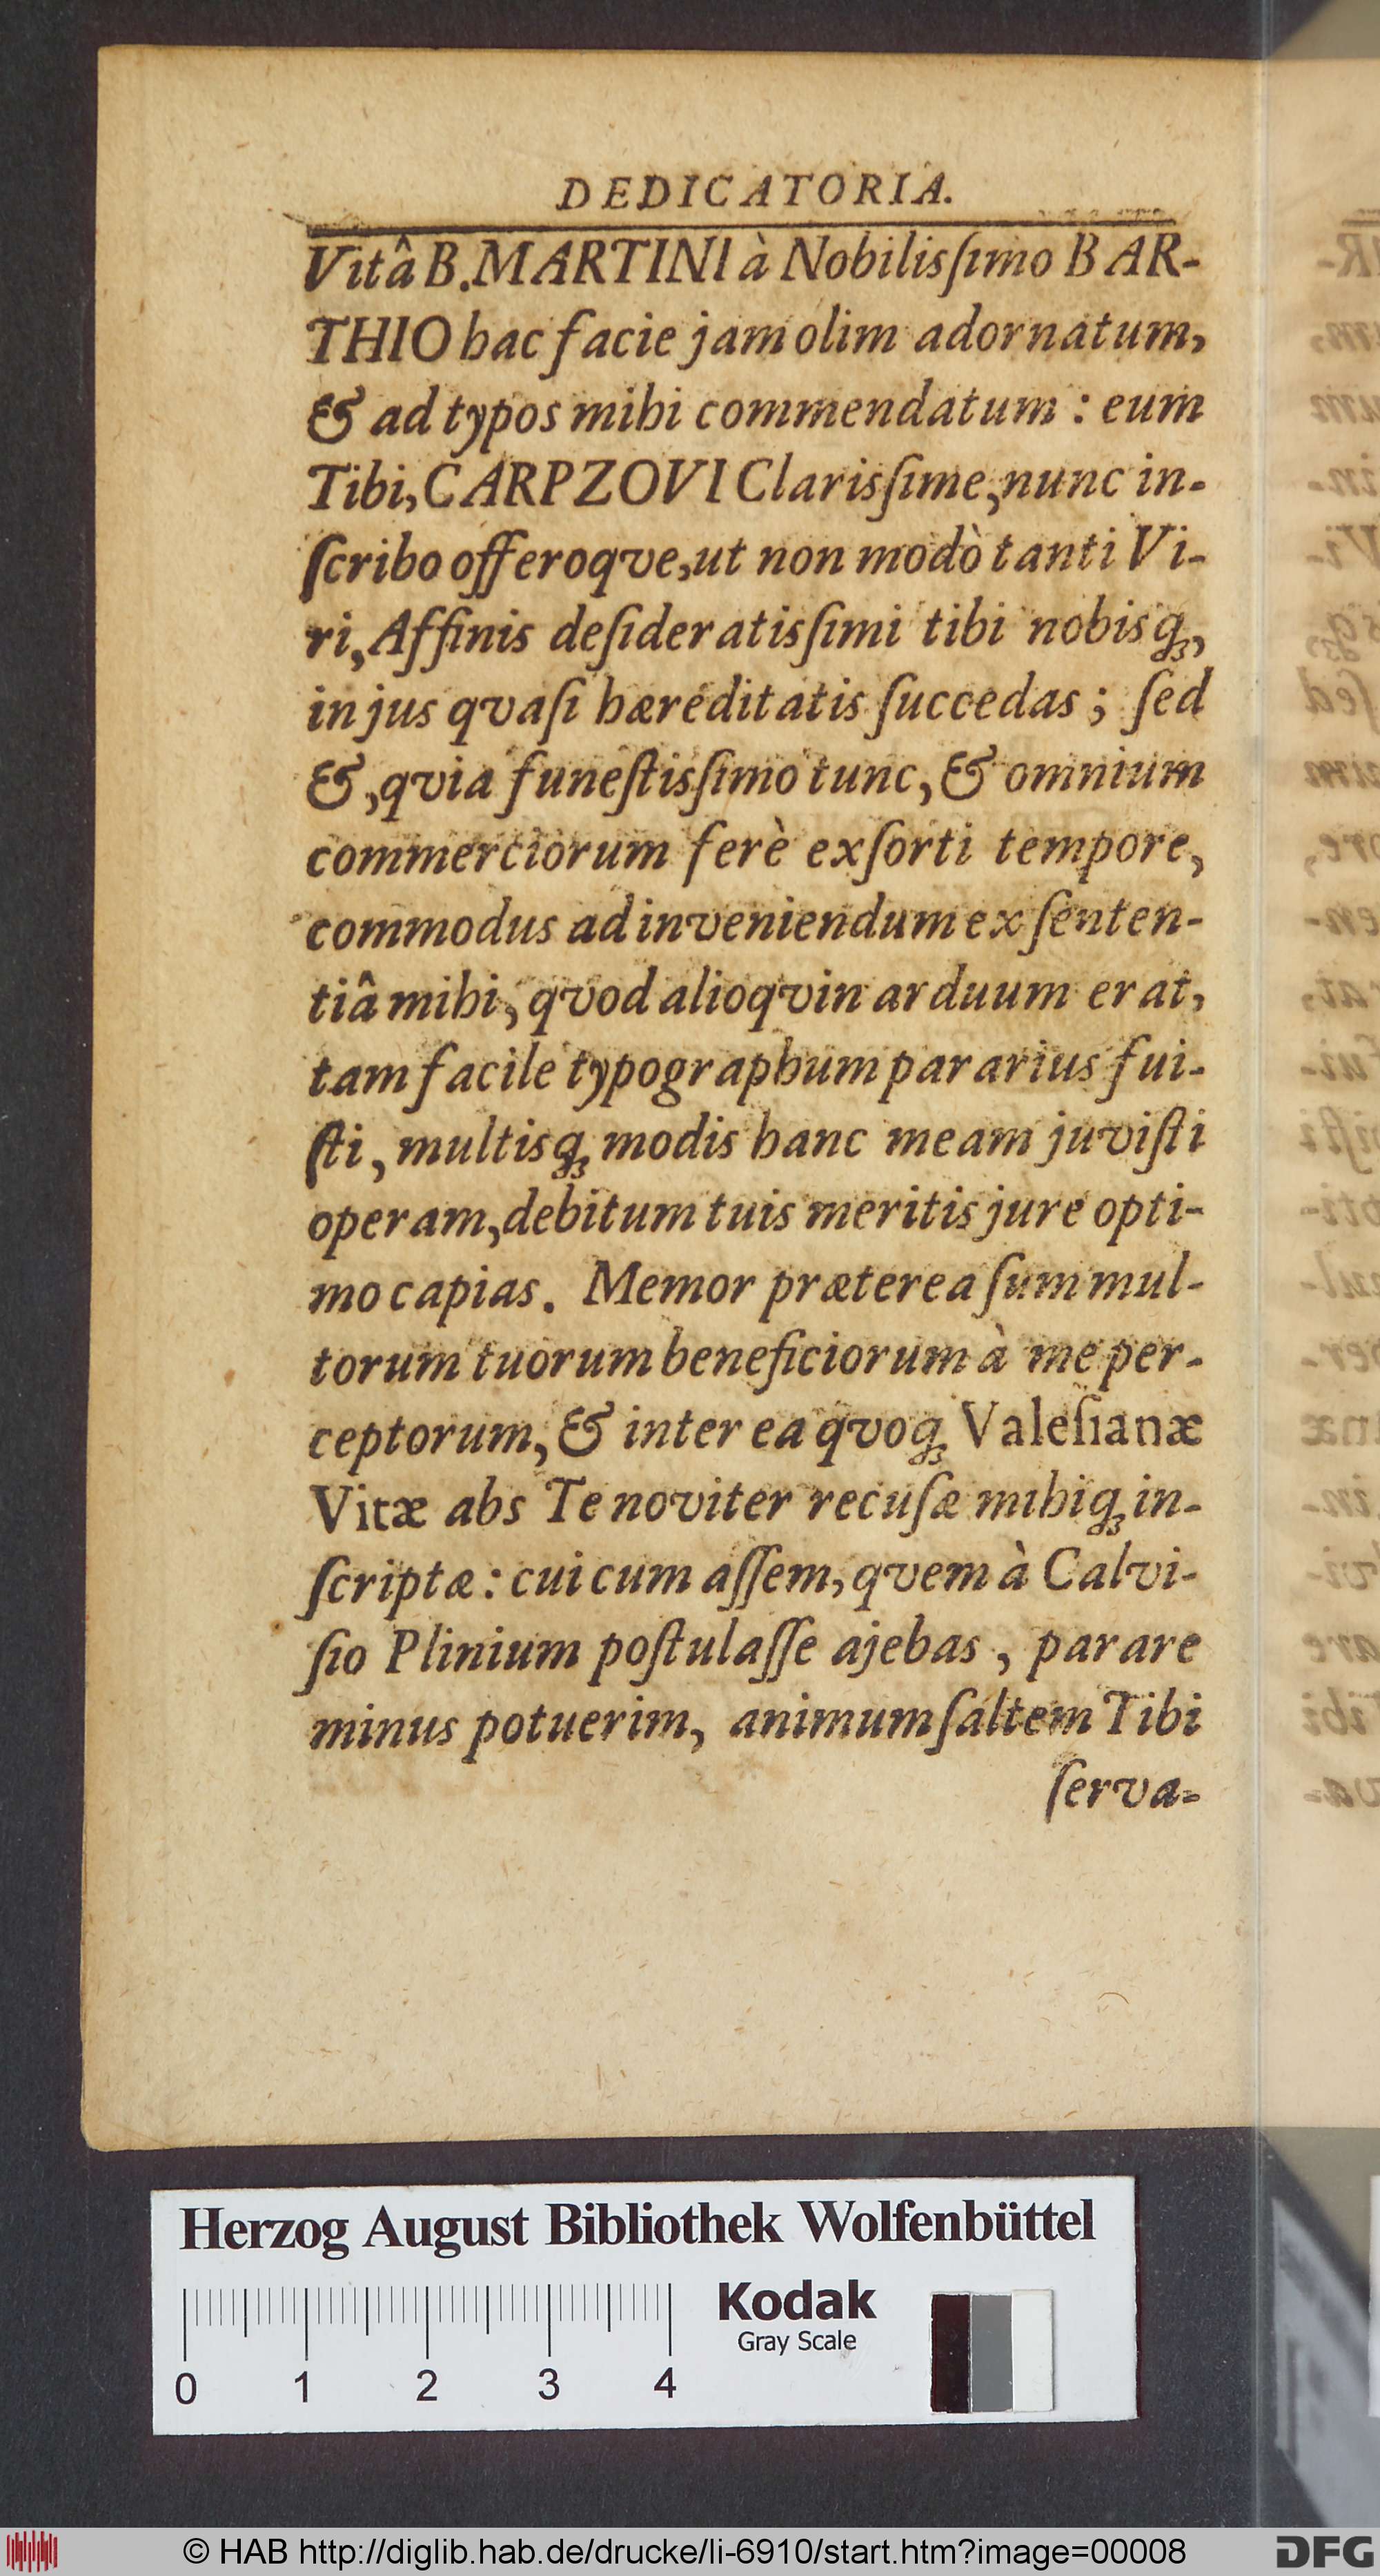 DEDICATORIA.
Vitâ B. MARTINI à Nobilisſimo BAR-
THIO hac facie jam olim adornatum,
& ad typos mihi commendatum : eum
Tibi, CARPZOVI Clarisſime, nunc in-
ſcribo offeroqve, ut non modò tanti Vi-
ri, Affinis deſideratisſimi tibi nobisq́ꝫ,
in jus qvaſi hæreditatis ſuccedas ; ſed
&, qvia funeſtisſimo tunc, & omnium
commerciorum ferè exſorti tempore,
commodus ad inveniendum ex ſenten-
tiâ mihi, qvod alioqvin arduum erat,
tam facile typographum pararius fui-
ſti, multisqꝫ modis hanc meam juviſti
operam, debitum tuis meritis jure opti-
mo capias. Memor præterea ſum mul-
torum tuorum beneficiorum à me per-
ceptorum, & inter ea qvoqꝫ Valeſianæ
Vitæ abs Te noviter recuſæ mihiqꝫ in-
ſcriptæ : cui cum aſſem, qvem à Calvi-
ſio Plinium poſtulaſſe ajebas, parare
minus potuerim, animum ſaltem Tibi
ſerva-
Herzog August Bibliothek Wolfenbüttel
Kodak
Gray Scale
0 1 2 3 4
© HAB http://diglib.hab.de/drucke/li-6910/start.htm?image=00008
DFG